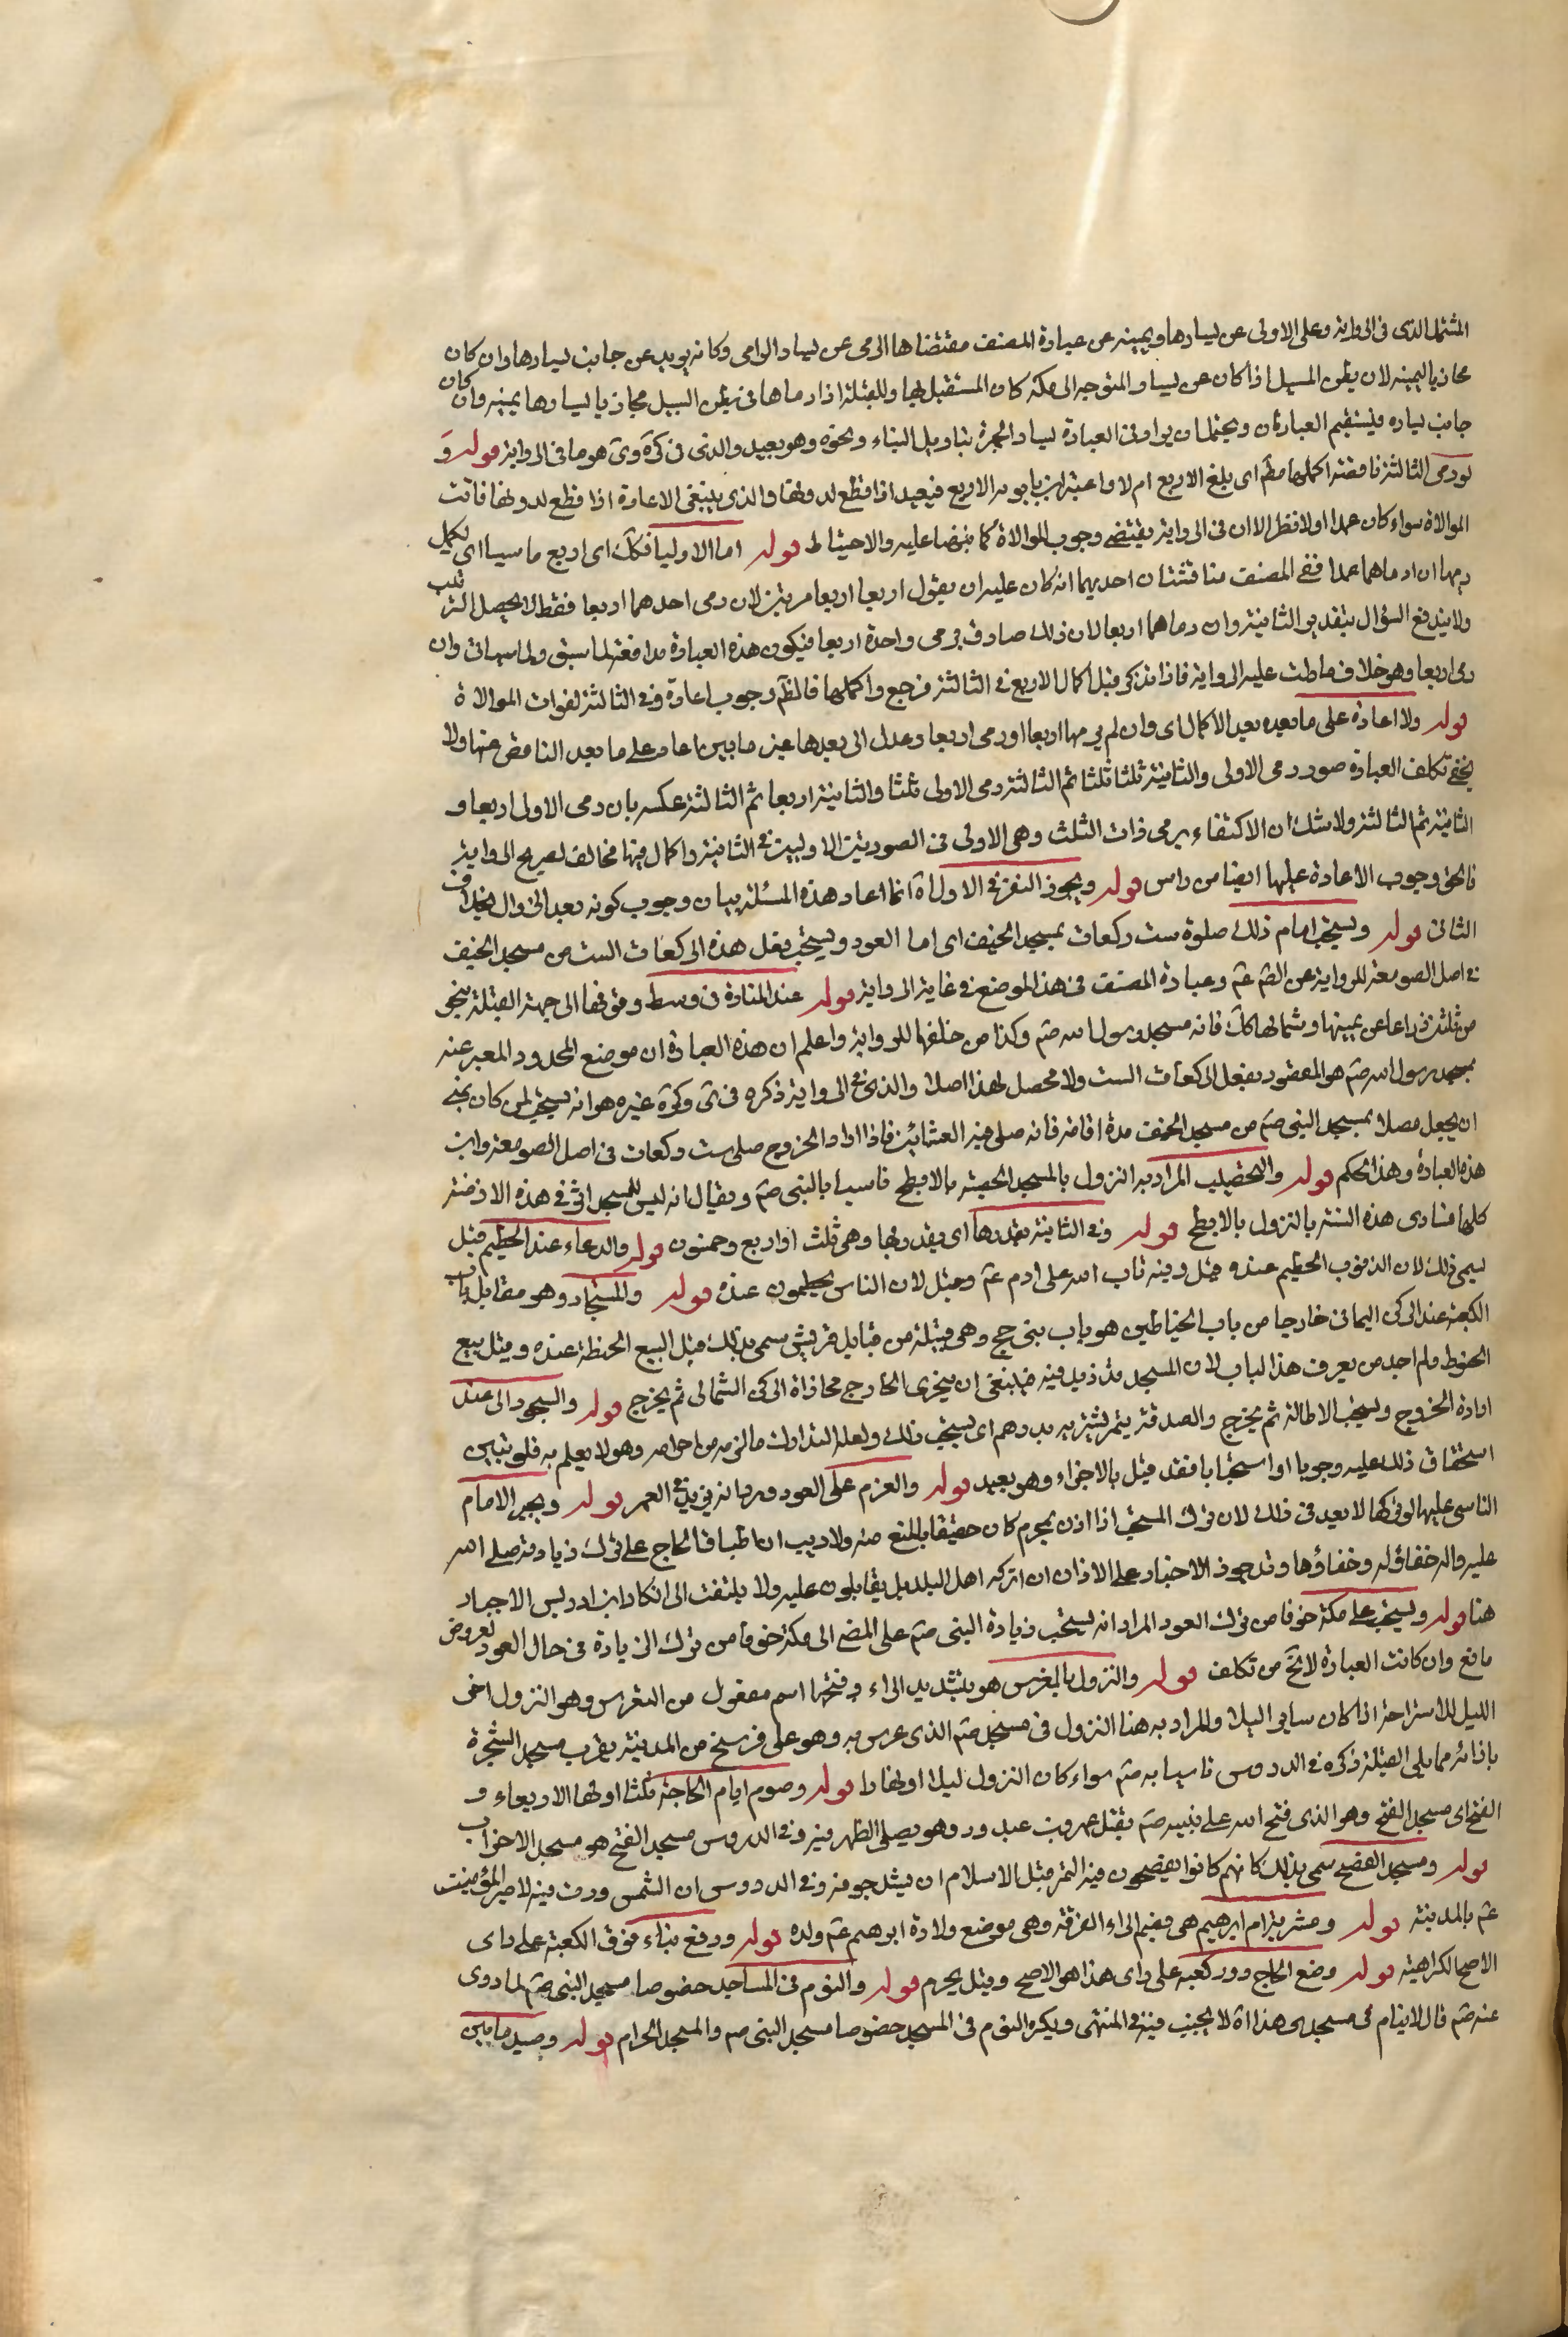 المشتمل الذى فى الرواية وعلى الاولى عن يسارها ويمينه عن عبارة المصنف مقتضاها الرمى عن يسار الرامى وكانه يريد عن جانب يسارها وان كان
محاذيا ليمينه لان بطن المسيل اذا كان عن يسار المتوجه الى مكة كان المستقبل لها وللقبلة اذا رماها فى بطن المسيل محاذيا ليسارها يمينه وان كان
جانب يساره فيستقيم العبارتان ويحتمل ان يراد فى العبارة يسار الجمرة بتاويل البناء ونحوه وهو بعيد والذى فى كره وى هو ما فى الرواية قوله و
لو رمى الثالثة ناقصة اكملها مطم اى بلغ الاربع ام لا واعتبر ابن بابويه الاربع فيعيد اذا قطع لدونها والذى ينبغى الاعادة اذا قطع لدونها فاتت
الموالاة سواء كان عمدا اولا نظرا الى ان فى الرواية يقتضى وجوب الموالاة كما نبهنا عليه والاحتياط قوله اما الاوليا فكك اى اربع ماسيا اى يكمل
رميها ان رماهما عمدا ففى المصنف مناقشتان احديهما انه كان عليه ان يقول اربعا اربعا مرتين لان رمى احدهما اربعا فقط لا يحصل الترتيب
ولا يندفع السؤال بتقدير الثانية وان رماهما اربعا لان ذلك صادق برمى واحدة اربعا فيكون هذه العبارة مدافعة لما سبق ولما سياتى وان
رمى اربعا وهو خلاف ما دلت عليه الرواية فاذا تذكر قبل اكمال الاربع فى الثالثة فرجع واكملها فالظم وجوب اعادة وفى الثالثة لفوات الموالاة
قوله ولا اعادة على ما بعده بعد الاكمال اى وان لم يرمها اربعا او رمى اربعا وعدل الى بعدها عن ما بين اعاد على ما بعد الناقص عنها ولا
يخفى تكلف العبارة صور رمى الاولى والثانية ثلثا ثلثا ثم الثالثة رمى الاولى ثلثا والثانية اربعا ثم الثالثة عكسه بان رمى الاولى اربعا و
الثانية ثم الثالثة ولا شك ان الاكتفاء برمى ذات الثلث وهى الاولى فى الصورتين الاوليين فى الثانية واكمال فيها مخالف لصريح الرواية
فالحق وجوب الاعادة عليها ايضا من راس قوله ويجوز النفر فى الاول اه انما اعاد هذه المسئلة لبيان وجوب كونه بعد الزوال بخلاف
الثانى قوله ويستحب امام ذلك صلوة ست ركعات بمسجد الخيف اى امام العود ويستحب فعل هذه الركعات الست من مسجد الخيف
فى اصل الصومعة للرواية عن الصم عم وعبارة المصنف فى هذا الموضع فى غاية الرواية قوله عند المنارة فى وسطه وفوقها الى جهة القبلة بنحو
من ثلثين ذراعا عن يمينها وشمالها كك فانه مسجد رسول الله صم وكذا من خلفها للرواية واعلم ان هذه العبارة ان موضع المحدود المعبر عنه
بمسجد رسول الله صم هو المقصود بفعل الركعات الست ولا محصل لهذا اصلا والذى فى الرواية ذكره فى ى وكره غيره هو انه يستحب لمن كان بمنى
ان يجعل مصلاه بمسجد النبى صم من مسجد الخيف مدة اقامته فانه صلى فيه العشائين فاذا اراد الخروج صلى ست ركعات فى اصل الصومعة واين
هذه العبارة وهذا الحكم قوله والتحصيب المراد به النزول بالمسجد الحصبة بالابطح تاسيا بالنبى صم ويقال انه ليس للمسجد اثر فى هذه الازمنة
كلها فتتادى هذه السنة بالنزول بالابطح قوله وفى الثانية بقدرها اى بقدرها وهى ثلث او اربع وخمسون قوله والدعاء عند الحطيم قيل
سمى ذلك لان الذنوب الحطيم عنده قيل وفيه تاب الله على ادم عم وقيل لان الناس يحطمون عنده قوله والمستجار وهو مقابل باب
الكعبة عند الركن اليمانى خارجا من باب الحناطين هو باب بنى جمح وهى قبيلة من قبايل قريش سمى بذلك قيل لبيع الحنطة عنده وقيل بيع
الحنوط ولم اجد من يعرف هذا الباب لان المسجد قد زيد فيه فينبغى ان يتحرى الخارج محاذاة الركن الشمالى ثم يخرج قوله والسجود الى عند
ارادة الخروج ويستحب الاطالة ثم يخرج والصدقة بتمر يشتريه بدرهم اى يستحب ذلك ولعله لتدارك ما لزمه من احرامه وهو لا يعلم به فلو تبين
استحقاق ذلك عليه وجوبا او استحبابا فقد قيل بالاجزاء وهو بعيد قوله والعزم على العود ورد انه يزيد فى العمر قوله ويجبر الامام
الناس عليها لو تركها لا بعد فى ذلك لان ترك المستحب اذا اذن بمحرم كان حقيقا بالمنع منه ولا ريب ان اطباق الحاج على ترك زيارته صلى الله
عليه واله خفاؤه له وخفاؤها وقد جوز الاجبار على الاذان ان تركه اهل البلد بل يقاتلون عليه ولا يلتفت الى انكار ابن ادريس الاجبار
هنا قوله ويستحب على مكة خوفا من ترك العود المراد انه يستحب زيارة النبى صم على المضى الى مكة خوفا من ترك الزيارة فى حال العود لعروض
مانع وان كانت العبارة لا تخ من تكلف قوله والنزول بالمعرس هو بتشديد الراء وفتحها اسم مفعول من التعريس وهو النزول اخر
الليل للاستراحة اذا كان ساير الليل والمراد به هنا النزول فى مسجد صم الذى عرس به وهو على فرسخ من المدينة بقرب مسجد الشجرة
بازائه مما يلى القبلة ذكره فى الدروس تاسيا به صم سواء كان النزول ليلا او نهارا قوله وصوم ايام الحاجة ثلثا اولها الاربعاء و
الفتح اى مسجد الفتح وهو الذى فتح الله على نبيه صم بقتل عمرو بن عبد ود وهو يصلى الظهر فيه وفى الدروس مسجد الفتح هو مسجد الاحزاب
قوله ومسجد الفضيح سمى بذلك كانهم كانوا يفضحون فيه التمر قبل الاسلام ان يشدخوه وفى الدروس ان الشمس ردت فيه لامير المؤمنين
عم بالمدينة قوله ومشربة ام ابرهيم هى بضم الراء الغرفة وهى موضع ولادة ابرهيم عم ولده قوله ورفع بناء فوق الكعبة على راى
الاصح الكراهية قوله ومنع الحاج دور كعبه على راى هذا هو الاصح وقيل يحرم قوله والنوم فى المساجد خصوصا مسجد النبى صم لما روى
عنه صم قال لا ينام فى مسجدى هذا اه لا يجنب فيه فى المنتهى ويكره النوم فى المسجد خصوصا مسجد النبى صم والمسجد الحرام قوله وصيد ما بين